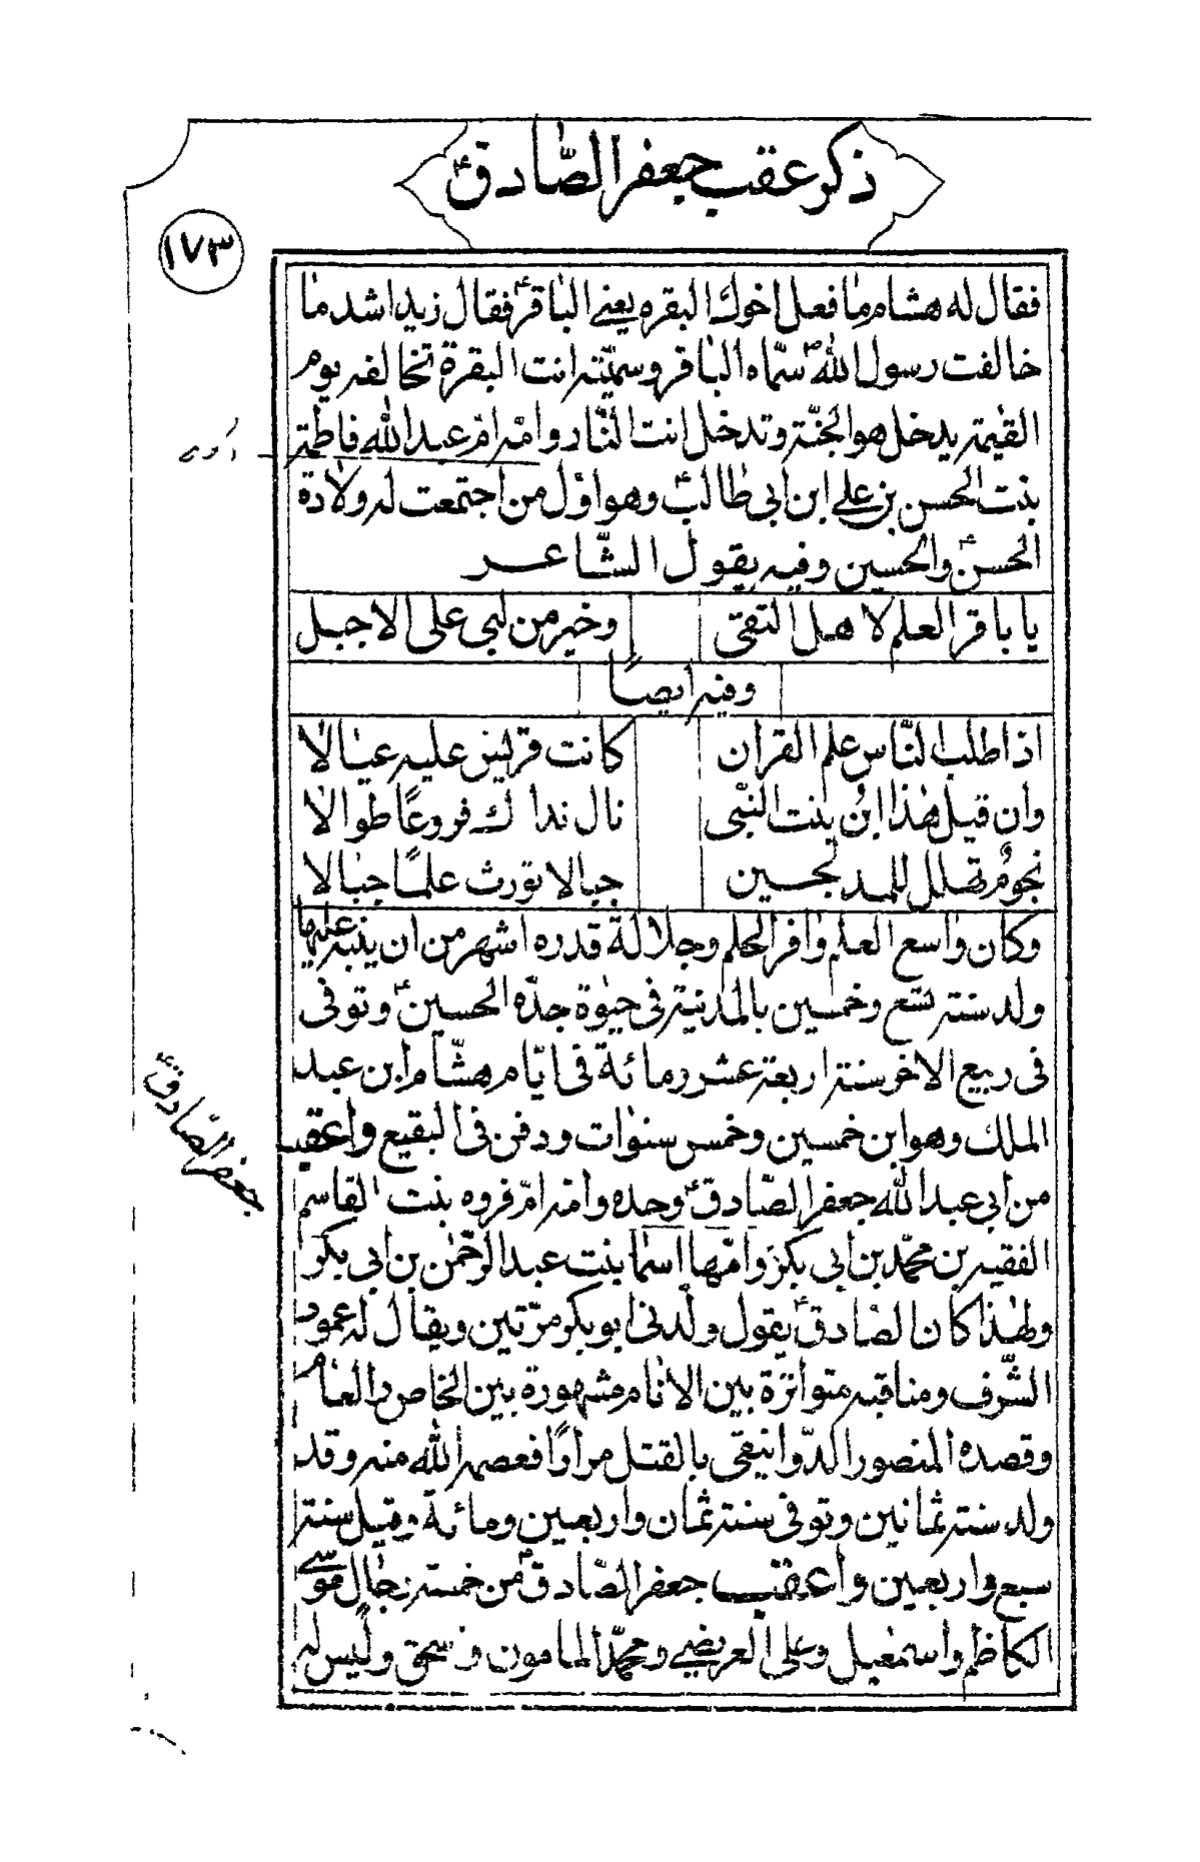 ذكر عقب جعفر الصّادق ع
١٧٣
فقال له هشام ما فعل اخوك البقره يعنى الباقر ع فقال زيد اشد ما
خالفت رسول الله ص سمّاه الباقر وسميّته انت البقرة تخالفه يوم
القيمة يدخل هو الجنّة وتدخل انت النّار وامّه امّ عبد الله فاطمة
بنت الحسن بن على ابن ابى طالب ع وهو اوّل من اجتمعت له ولادة
الحسن ع والحسين وفيه يقول الشّاعر
يا باقر العلم لاهل التقى وخير من لبى على الاجبل
وفيه ايضاً
اذا طلب النّاس علم القران كانت قريش عليه عيالا
وان قيل هذا ابن بنت النّبى نال نداك فروعاً طوالا
نجومٌ تهلل للمدلجين جبالا تورث علماً جبالا
وكان واسع العلم وافر الحلم وجلالة قدره اشهر من ان ينبه عليها
ولد سنة تسع وخمسين بالمدنية فى حيوة جدّه الحسين ع وتوفى
فى ربيع الاخر سنة اربعة عشر ومائة فى ايّام هشّام ابن عبد
الملك وهو ابن خمسين وخمس سنوات ودفن فى البقيع واعقب
من ابى عبد الله جعفر الصّادق ع وحده وامّه امّ فروه بنت القاسم
الفقيه بن محمّد بن ابى بكر وامّها اسما بنت عبد الرّحمن بن ابى بكر
ولهذا كان الصّادق ع يقول ولدنى ابو بكر مرّتين ويقال له عمود
الشّرف ومناقبه متواترة بين الانام مشهورة بين الخاص والعام
وقصده المنصور الدّوانيقى بالقتل مراراً فعصمه الله منه وقد
ولد سنة ثمانين وتوفى سنة ثمان واربعين ومائة وقيل سنة
سبع واربعين واعقب جعفر الصّادق ع من خمسة رجال موسى
الكاظم واسمعيل وعلى العريضى ومحمّد المامون واسحق وليس له
جعفر الصّادق ع